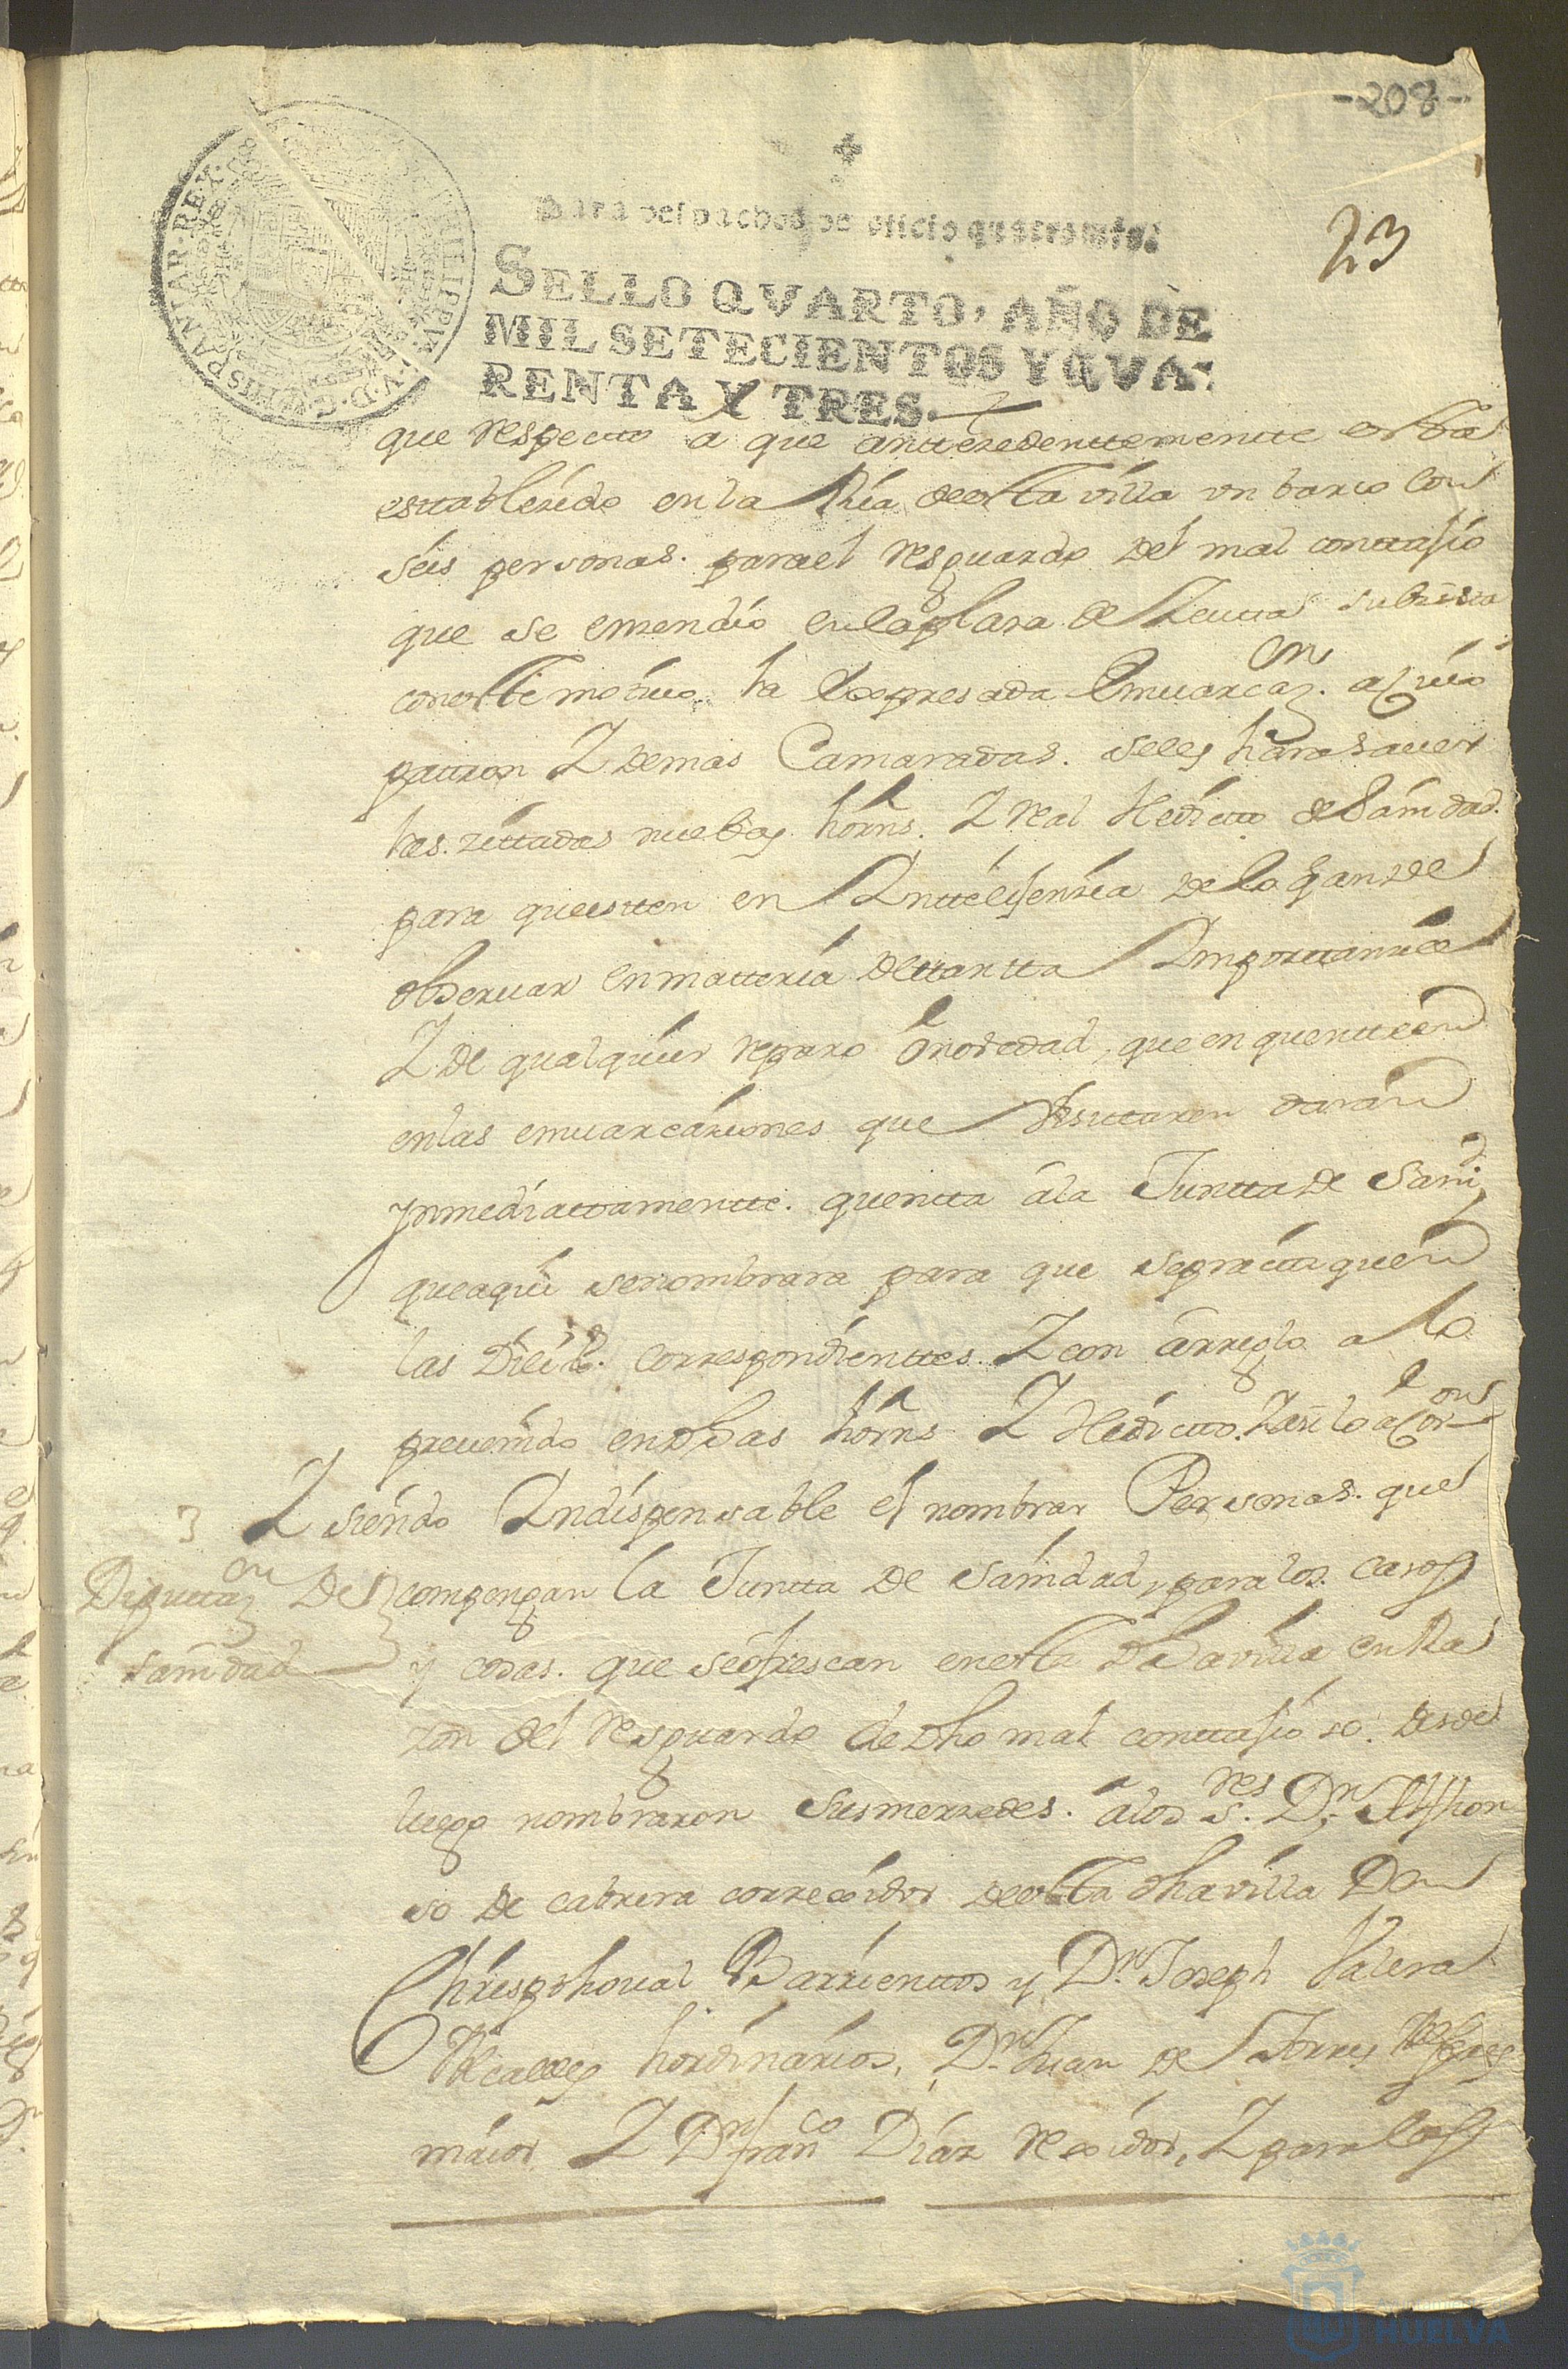 -208-
23
Para despachos de oficio quatro mrs.
SELLO QVARTO, AÑO DE
MIL SETECIENTOS Y QVA-
RENTA Y TRES.
PHILIPPVS V. D. G. HISPANIAR. REX.
que respecto a que anttezedenttemente estta
esttablezido en la Ria de estta villa vn barco con
seis personas. para el resguardo del mal conttajio
que se enzendio en la plaza de Zeutta subsista
con estte motiuo la expresada Emuarcazon. a cuio
pattron Y demas Camaradas. se les hara sauer
las zittadas nuebas hornˢ. Y real Hedicto de Sanidad.
para que esten en Ynttelijenzia de lo q̃ an de
obseruar en matteria de ttantta Ymporttanzia
Y de qualquier reparo o nobedad, que enquenttren
en las emuarcaziones que visittaren daran
ynmediattamentte. quentta a la Juntta de Sanid
que aqui se nombrara para que se practtiquen
las Dilixas. correspondienttes. Y con arreglo a lo
preuenido en dhas hornˢ Y Hedicto. Y asi lo acor on
3 Y siendo Yndispensable el nombrar Personas. que
Diputtazon De compongan la Juntta de sanidad, para los. casos
sanidad y cosas. que se ofrescan en estta dha villa en Ra
zon del resguardo de dho mal conttajioso. desde
luego nombraron Sus merzedes. a los Sres. Dn Alfhon
so de cabrera correxidor de estta dha villa Dn
Chrispthoual Barrienttos y Dn Joseph Valera
Alcaldes hordinarios, Dn Juan de Torres
maior Y Dn franco Diaz rexidor, Y para los
HUELVA